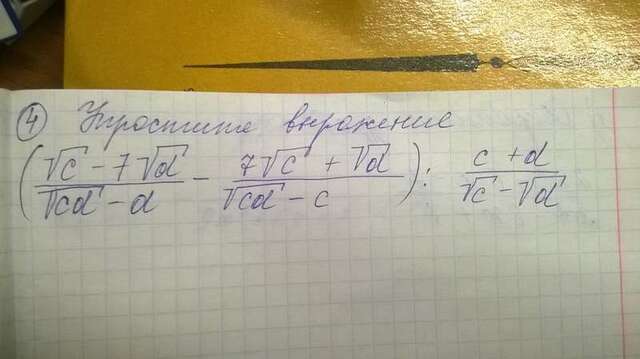 ④ Упростите выражение
(√c - 7√d / √cd - d - 7√c + √d / √cd - c) : c + d / √c - √d